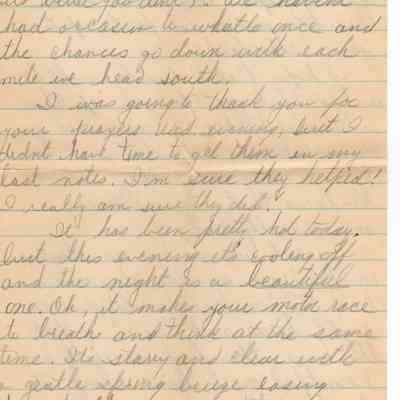 had occasion to whatto once and
the chances go down with each
mile we head south.
I was going to thank you for
your prayers last evening, but I
didnt have time to get them in my
last notes. I'm sure they helped!
I really am sure they did.
It has been pretty hot today,
but this evening it's cooling off
and the night is a beautiful
one. Oh, it makes your mind race
to breath and think at the same
time. It's starry and clear with
a gentle spring breeze easing